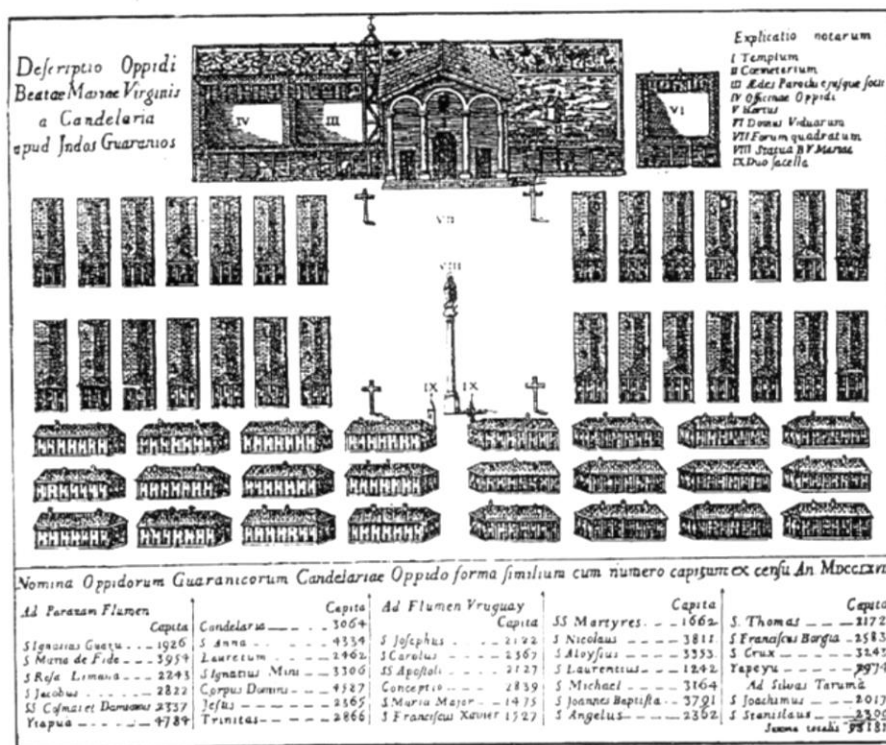 Descriptio Oppidi
Beatae Mariae Virginis
a Candelaria
apud Indos Guaranios
Explicatio notarum
I Templum
II Cœmeterium
III Ædes Parochi ejusque socii
IV Officinae Oppidi
V Hortus
VI Domus Viduarum
VII Forum quadratum
VIII Statua B V Mariae
IX Duo sacella
IV
III
VI
VII
VIII
IX
IX
Nomina Oppidorum Guaranicorum Candelariae Oppido forma similium cum numero capitum ex censu An
Ad Paranam Flumen
Capita
S Ignatius Guazu 1926
S Maria de Fide 3954
S Rosa Limana 2243
S Jacobus 2822
SS Cosmas et Damianus 2337
Ytapua 4784
Capita
Candelaria 3064
S Anna 4334
Lauretum 2462
S Ignatius Mini 3306
Corpus Domini 4587
Jesus 2365
Trinitas 2866
Ad Flumen Vruguay
Capita
S Josephus 2122
S Carolus 2367
SS Apostoli 2127
Conceptio 2839
S Maria Major 1475
S Franciscus Xavier 1527
Capita
SS Martyres 1662
S Nicolaus 3811
S Aloysius 3353
S Laurentius 1242
S Michael 3164
S Joannes Baptista 3791
S Angelus 2362
Capita
S Thomas 2172
S Franciscus Borgia 2583
S Crux 3243
Yapeyu
Ad Silvas Taruma
S Joachimus 2017
S Stanislaus
Summa totalis